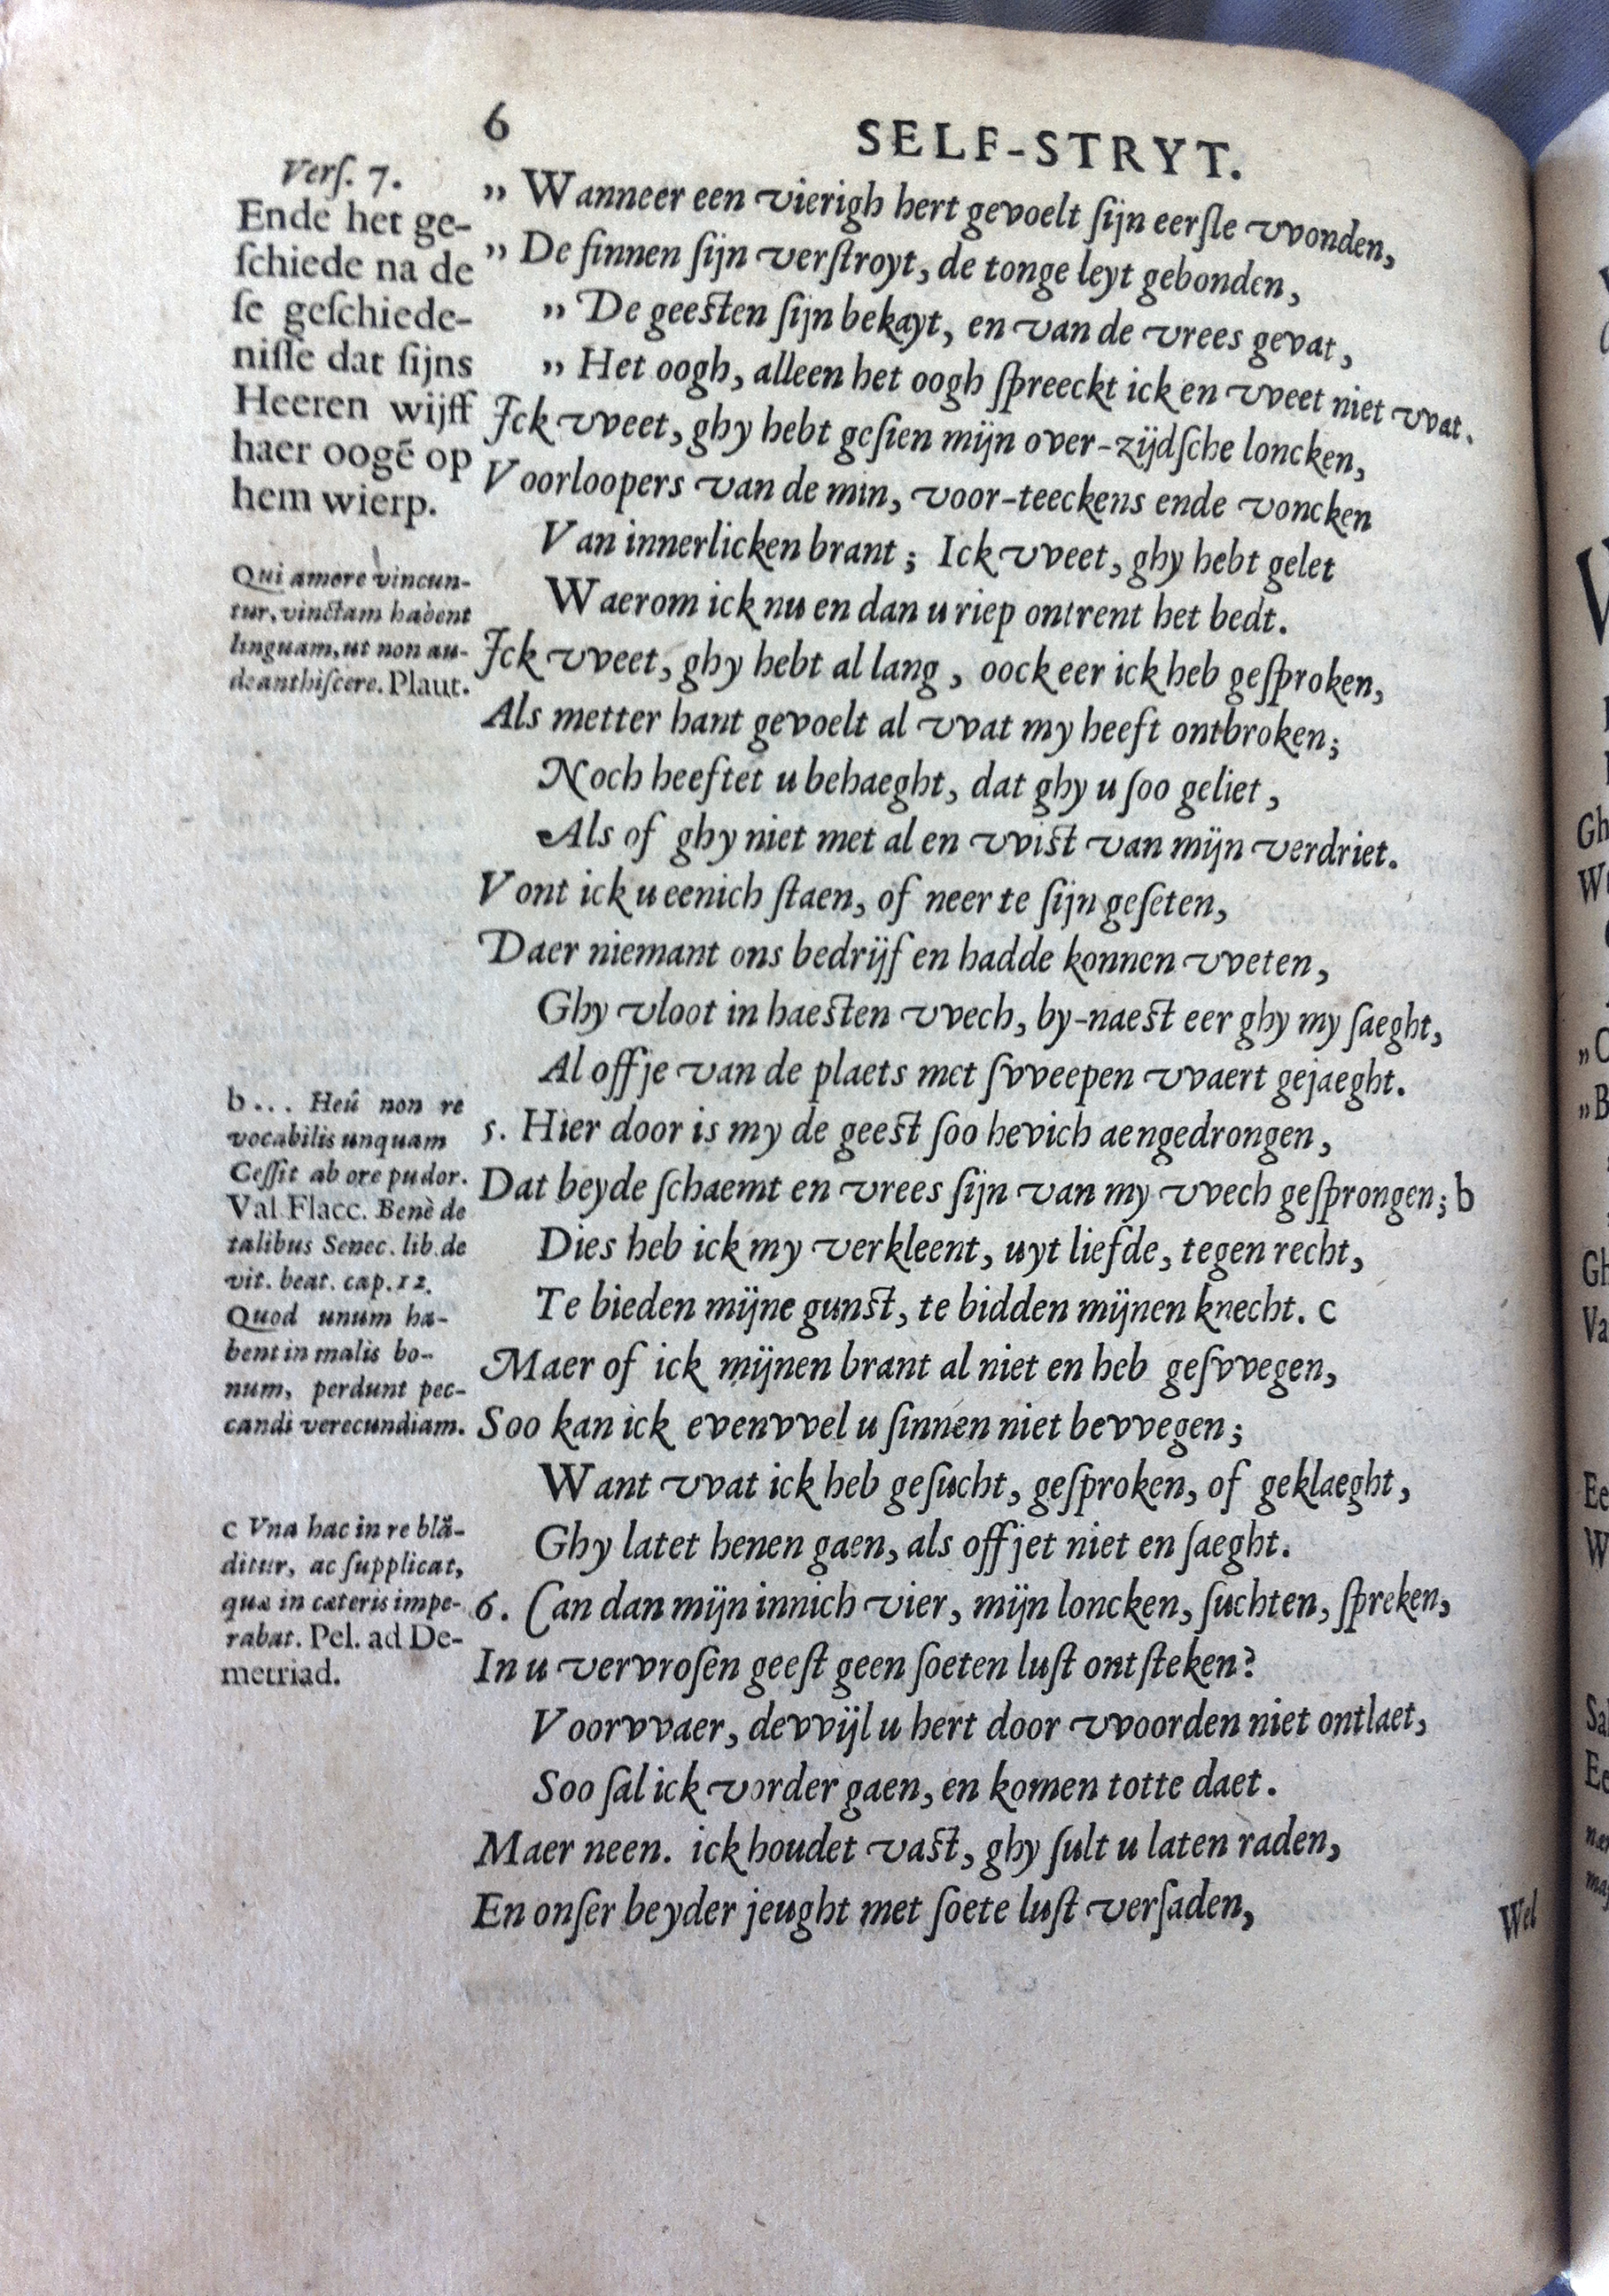 6
SELF-STRYT.
Verſ. 7.
Ende het ge-
ſchiede na de
ſe geſchiede-
niſſe dat ſijns
Heeren wijff
haer oogẽ op
hem wierp.
Qui amore vincun-
tur, vinctam habent
linguam, ut non au-
deant hiſcere. Plaut.
b... Heû non re
vocabilis unquam
Ceſſit ab ore pudor.
Val Flacc. Benè de
talibus Senec. lib. de
vit. beat. cap. 12.
Quod unum ha-
bent in malis bo-
num, perdunt pec-
candi verecundiam.
c Vna hac in re blã-
ditur, ac ſupplicat,
quæ in cæteris impe-
rabat. Pel. ad De-
metriad.
„ Wanneer een vierigh hert gevoelt ſijn eerſte vvonden,
„ De ſinnen ſijn verſtroyt, de tonge leyt gebonden,
„ De geesten ſijn bekayt, en van de vrees gevat,
„ Het oogh, alleen het oogh ſpreeckt ick en vveet niet vvat.
Ick vveet, ghy hebt geſien mijn over-zijdſche loncken,
Voorloopers van de min, voor-teeckens ende voncken
Van innerlicken brant; Ick vveet, ghy hebt gelet
Waerom ick nu en dan u riep ontrent het bedt.
Ick vveet, ghy hebt al lang, oock eer ick heb geſproken,
Als metter hant gevoelt al vvat my heeft ontbroken;
Noch heeftet u behaeght, dat ghy u ſoo geliet,
Als of ghy niet met al en vvist van mijn verdriet.
Vont ick u eenich ſtaen, of neer te ſijn geſeten,
Daer niemant ons bedrijf en hadde konnen vveten,
Ghy vloot in haesten vvech, by-naest eer ghy my ſaeght,
Al offje van de plaets met ſvveepen vvaert gejaeght.
5. Hier door is my de geest ſoo hevich aengedrongen,
Dat beyde ſchaemt en vrees ſijn van my vvech geſprongen; b
Dies heb ick my verkleent, uyt liefde, tegen recht,
Te bieden mijne gunst, te bidden mijnen knecht. c
Maer of ick mijnen brant al niet en heb geſvvegen,
Soo kan ick evenvvel u ſinnen niet bevvegen;
Want vvat ick heb geſucht, geſproken, of geklaeght,
Ghy latet henen gaen, als offjet niet en ſaeght.
6. Can dan mijn innich vier, mijn loncken, ſuchten, ſpreken,
In u vervroſen geeſt geen ſoeten luſt ontſteken?
Voorvvaer, devvijl u hert door vvoorden niet ontlaet,
Soo ſal ick vorder gaen, en komen totte daet.
Maer neen. ick houdet vast, ghy ſult u laten raden,
En onſer beyder jeught met ſoete luſt verſaden,
Wel